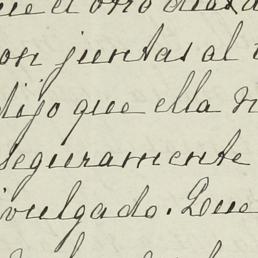 que el otro dia
on juntas al
dijo que ella n
seguramente
ivulgado. Que